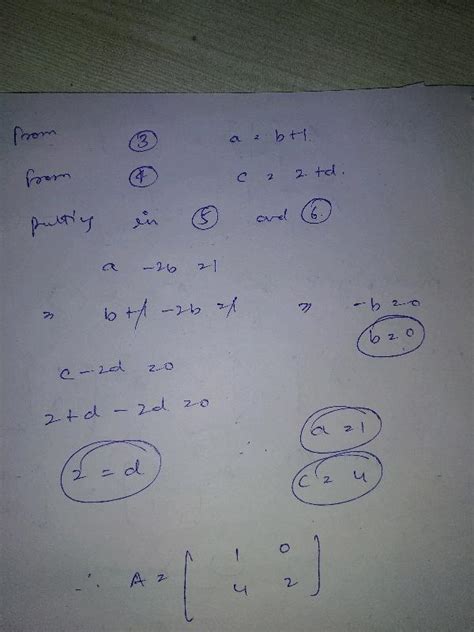 From ③ a = b+1.
from ④ c = 2+d.
putting in ⑤ and ⑥.
a - 2b = 1
⇒ b+1 - 2b = 1 ⇒ -b = 0
b = 0
c - 2d = 0
2+d - 2d = 0
a = 1
2 = d
c = 4
∴ A = [ 1 0
4 2 ]